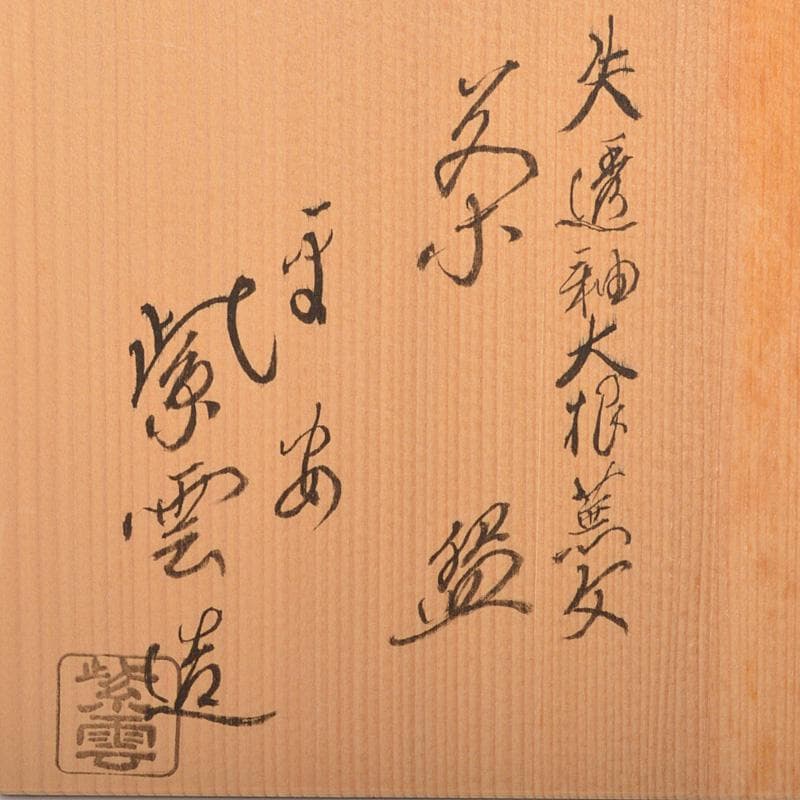 失透釉大根蕪文
茶盌
平安
紫雲造
紫雲